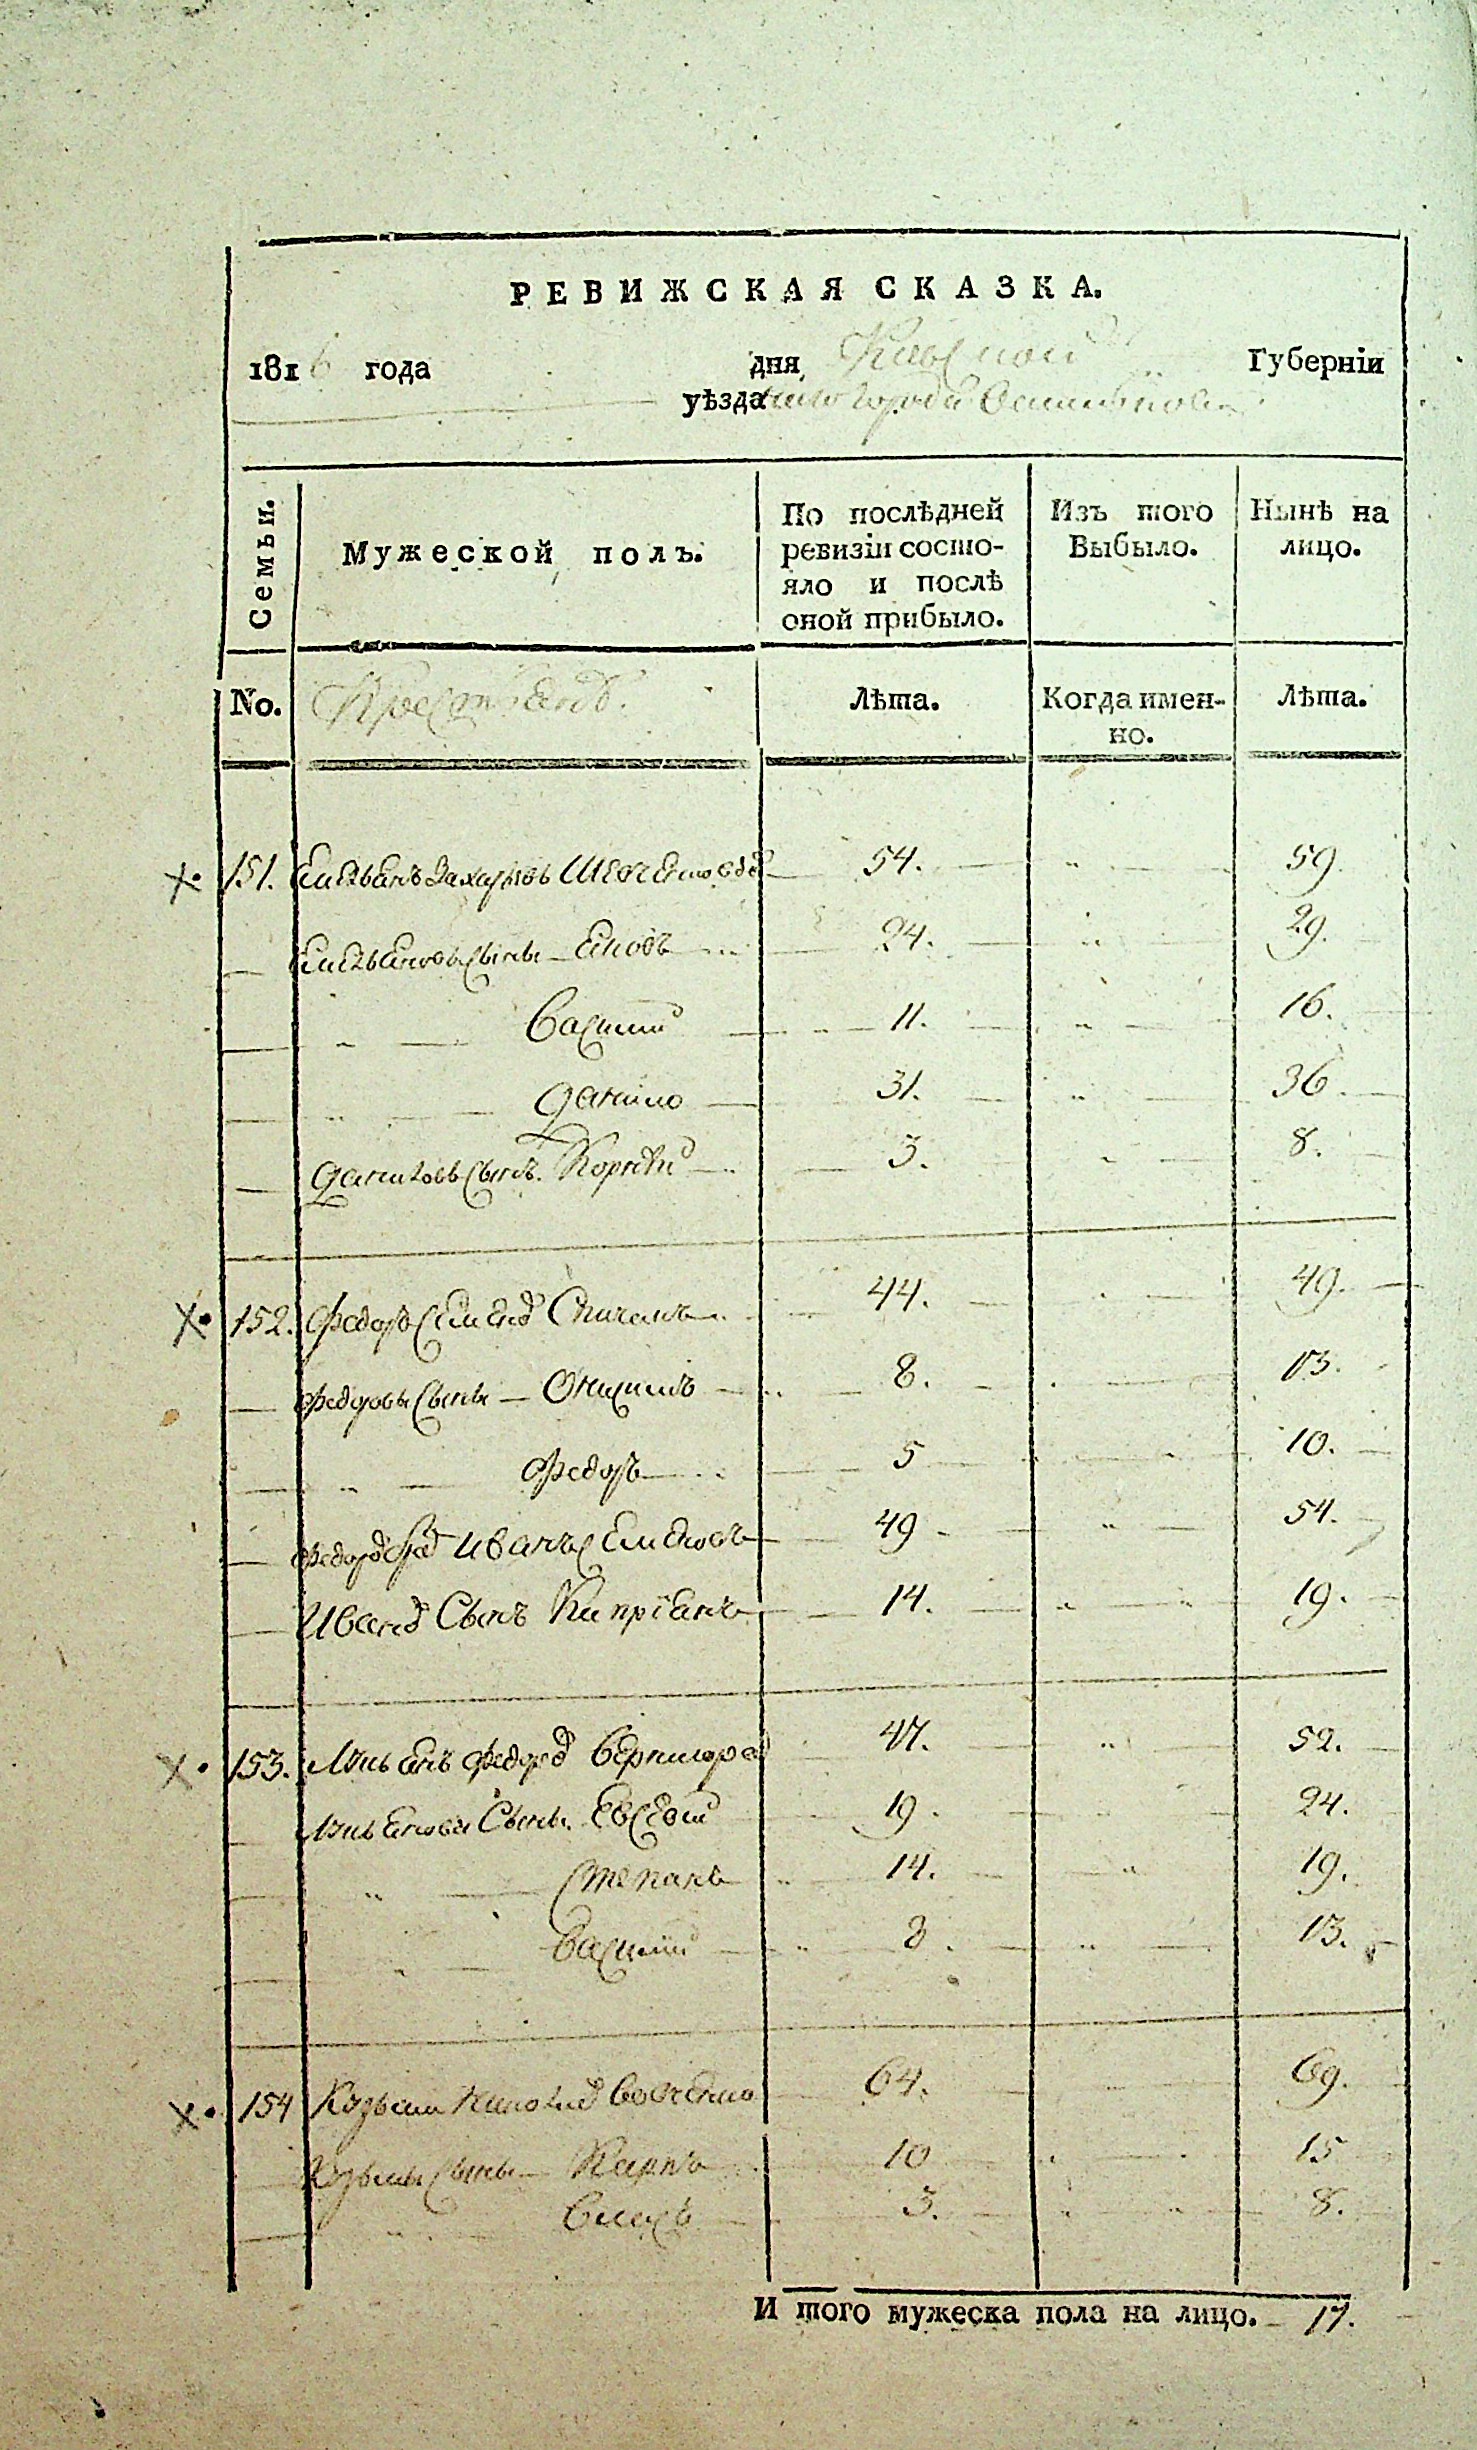 РЕВИЖСКАЯ СКАЗКА.
1816 года дня Киевской Губернїи
уѣзда города
Семьи.
Мужеской полъ.
По послѣдней ревизїи состояло и послѣ оной прибыло.
Изъ того Выбыло.
Нынѣ на лицо.
No. Крестьянъ. Лѣта. Когда именно. Лѣта.
151. Емельянъ Захарьевъ Шевченковъ 54. 59.
Емельяновы Сыны Яковъ 24. 29.
Василий 11. 16.
Данило 31. 36.
Даниловъ Сынъ. Корнѣй 3. 8.
152. Федоръ Семеновъ Спичакъ 44. 49.
Федоровы Сыны Онисимъ 8. 13.
Федоръ 5 10.
Федоровъ братъ Иванъ Семеновъ 49 54.
Ивановъ Сынъ Кипріянъ 14. 19.
153. Лукьянъ Федоровъ Вернигора 47. 52.
Лукьяновы Сыны. Евсевий 19. 24.
Степанъ 14. 19.
Василий 8. 13.
154 Козьма 64. 69.
Козьмы Сыны Карпъ 10 15
Власъ 3. 8.
И того мужеска пола на лицо. 17.